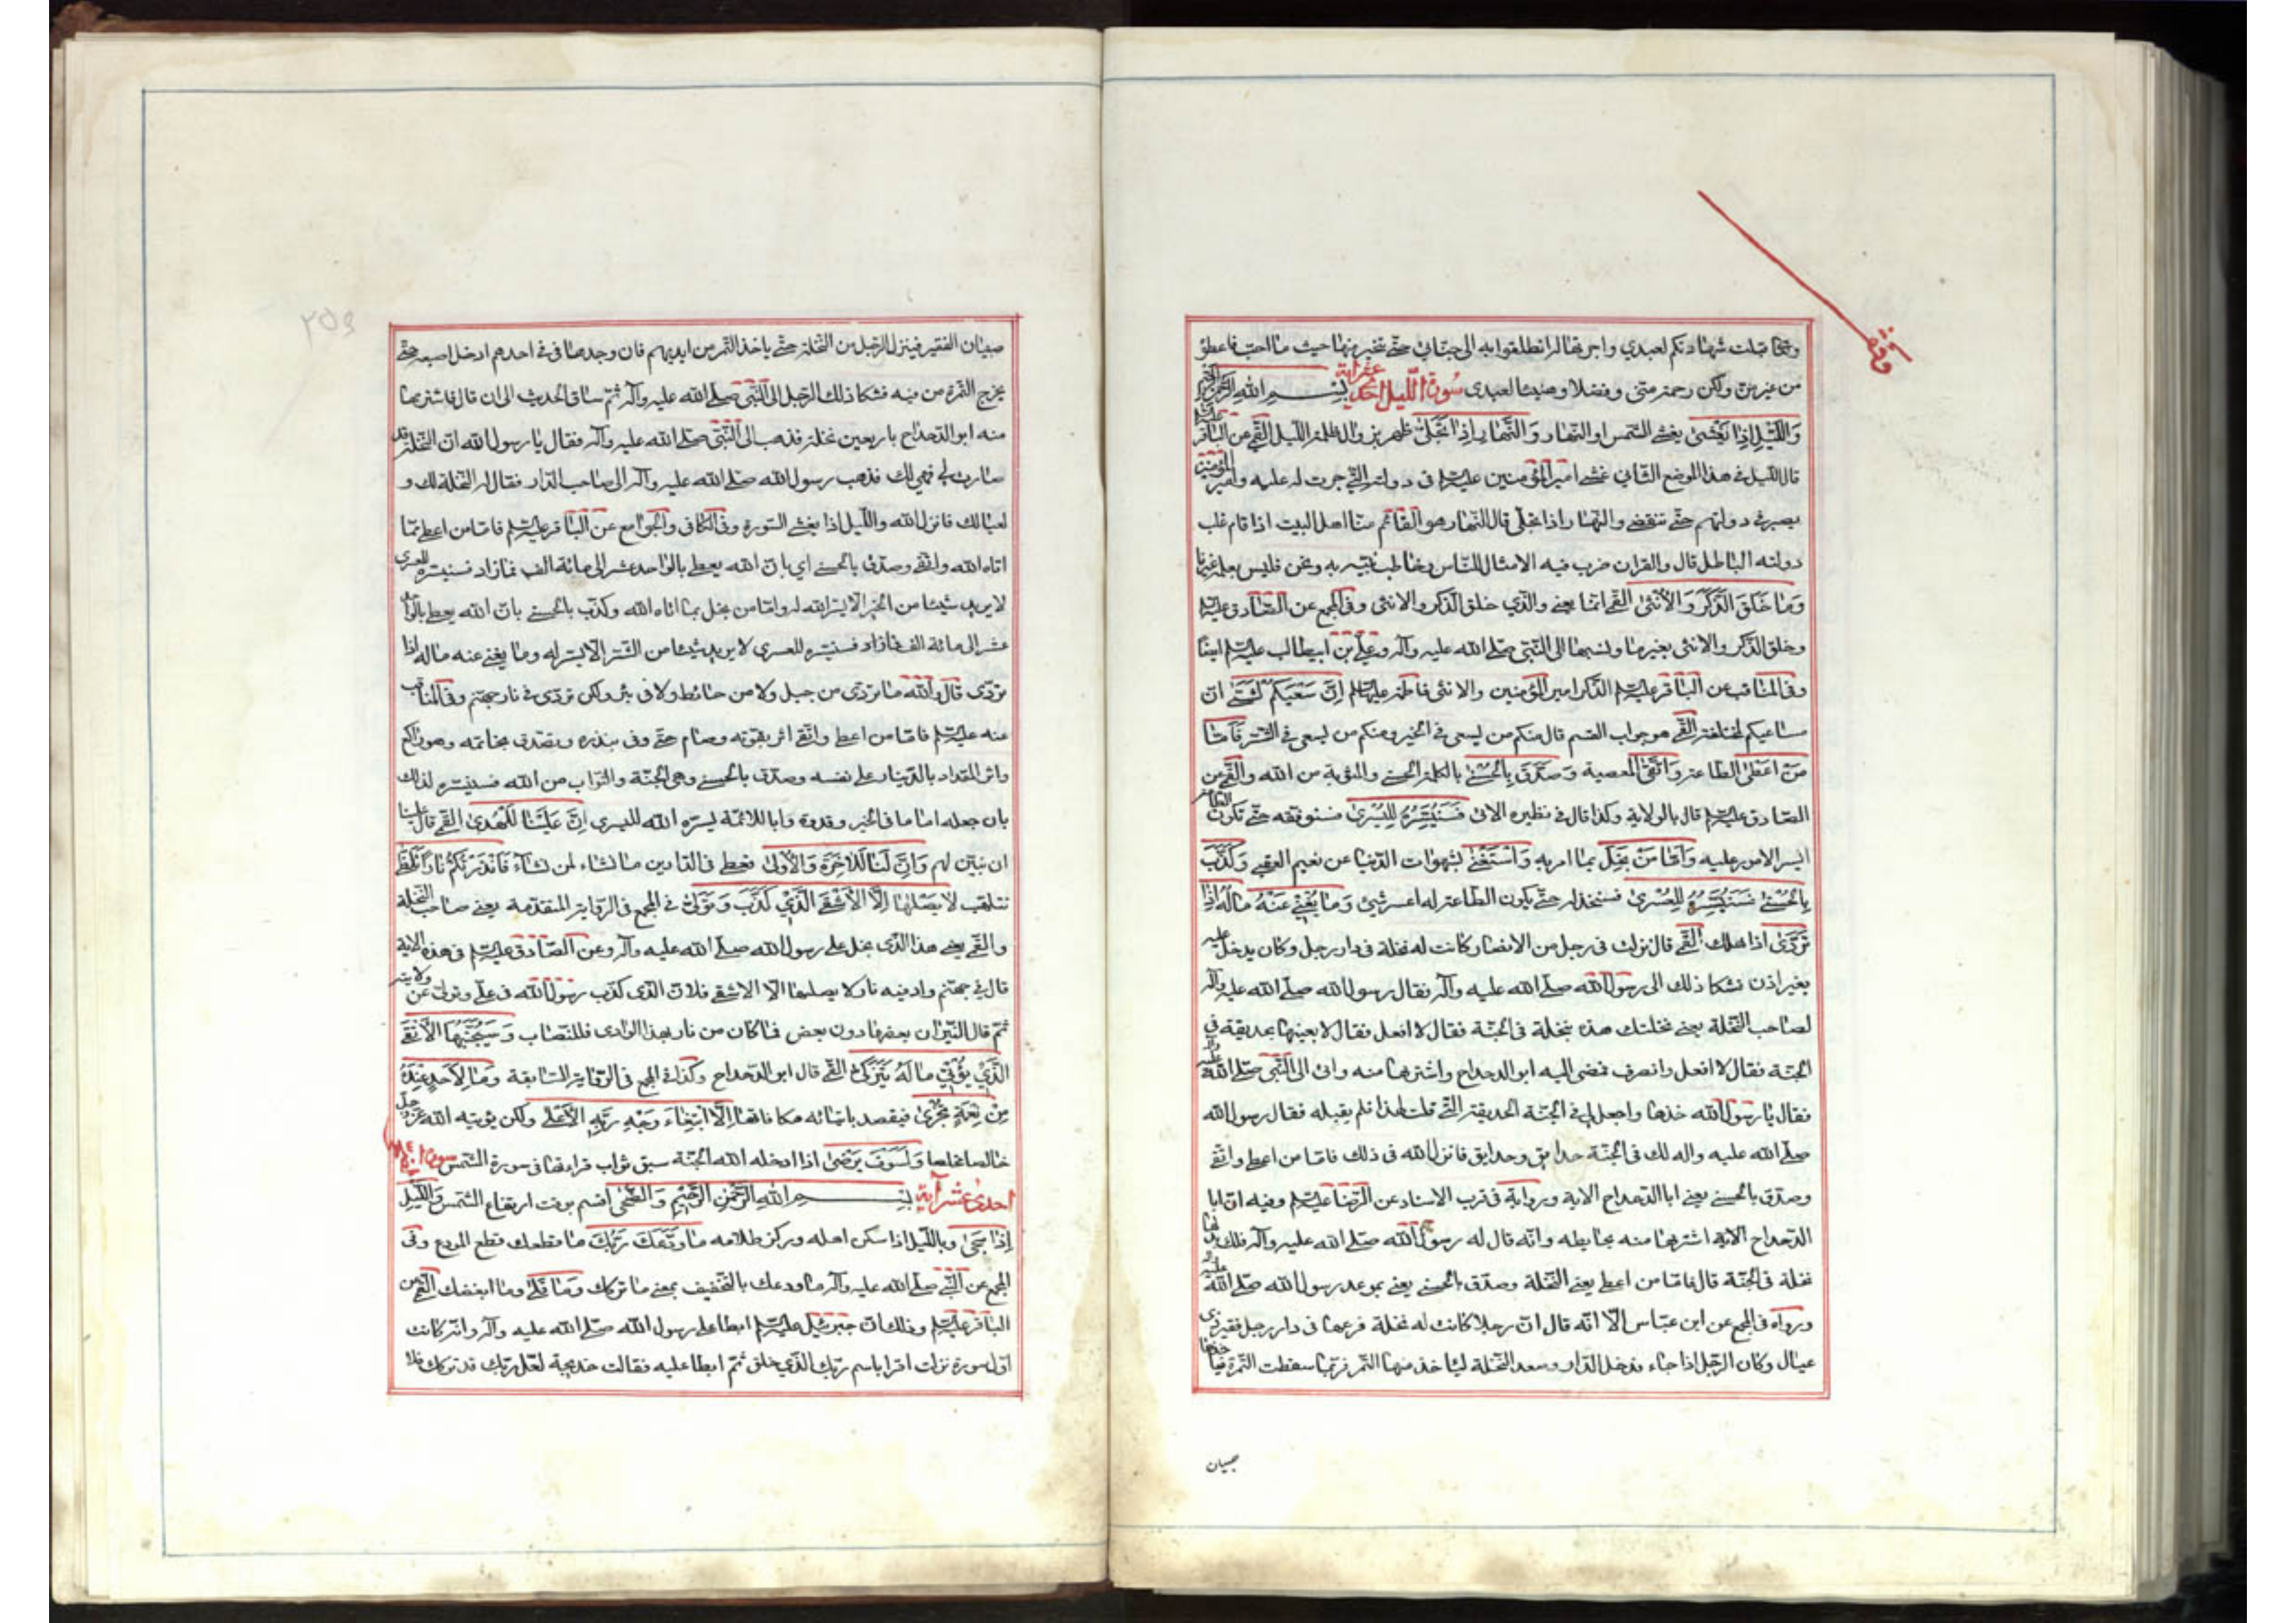 وقفه
وضحا قبلت شهادتكم لعبدي واجزتها له انطلقوا به الى جناتي حتى تخير منها حيث ما احب فاعطوه
من غير من ولكن رحمة مني وفضلا وهنيئا لعبدي سورة الليل احدى عشر آية بسم الله الرحمن الرحيم
وَاللَّيْلِ إِذَا يَغْشىٰ يغشى الشمس او النهار وَالنَّهَارِ إِذَا تَجَلَّىٰ ظهر بزوال ظلمة الليل القمي عن الباقر عليه السلام
قال الليل في هذا الموضع الثاني غشى امير المؤمنين عليه السلام في دولته التي جرت له عليه وامير المؤمنين
يصبر في دولتهم حتى تنقضي والنهار اذا تجلى قال النهار هو القائم منا اهل البيت اذا قام غلب
دولته الباطل قال والقران ضرب فيه الامثال للناس وخاطب نبيه به ونحن فليس يعلمه غيرنا
وَمَا خَلَقَ الذَّكَرَ وَالْأُنْثَىٰ القمي انما يعني والذي خلق الذكر والانثى وفي المجمع عن الصادق عليه السلام
وخلق الذكر والانثى بغير ما ونسبها الى النبي صلى الله عليه وآله وعلي بن ابيطالب عليه السلم ايضا
وفي المناقب عن الباقر عليه السلم الذكر امير المؤمنين والانثى فاطمة عليهما السلم إِنَّ سَعْيَكُمْ لَشَتَّىٰ ان
مساعيكم لمختلفة القمي هو جواب القسم قال منكم من يسعى في الخير ومنكم من يسعى في الشر فَأَمَّا
مَنْ أَعْطَىٰ الطاعة وَاتَّقَىٰ المعصية وَصَدَّقَ بِالْحُسْنَىٰ بالكلمة الحسنى والمثوبة من الله والقمي عن
الصادق عليه السلم قال بالولاية وكذا قال في نظيره الاتي فَسَنُيَسِّرُهُ لِلْيُسْرَىٰ فسنوفقه حتى تكون الطاعة
ايسر الامور عليه وَأَمَّا مَنْ بَخِلَ بما امر به وَاسْتَغْنَىٰ بشهوات الدنيا عن نعيم العقبى وَكَذَّبَ
بِالْحُسْنَىٰ فَسَنُيَسِّرُهُ لِلْعُسْرَىٰ فسنخذله حتى يكون الطاعة له اعسر شيئ وَمَا يُغْنِي عَنْهُ مَالُهُ إِذَا
تَرَدَّىٰ اذا هلك القمي قال نزلت في رجل من الانصار كانت له نخلة في دار رجل وكان يدخل عليه
بغير اذن فشكا ذلك الى رسول الله صلى الله عليه وآله فقال رسول الله صلى الله عليه وآله
لصاحب النخلة بعني نخلتك هذه بنخلة في الجنة فقال لا افعل فقال لا بعينها بحديقة في
الجنة فقال لا افعل وانصرف فمضى اليه ابو الدحداح واشتراها منه واتى الى النبي صلى الله عليه وآله
فقال يا رسول الله خذها واجعل لي في الجنة الحديقة التي قلت لهذا فلم يقبله فقال رسول الله
صلى الله عليه واله لك في الجنة حدايق وحدايق فانزل الله في ذلك فاما من اعطى واتقى
وصدق بالحسنى يعني ابا الدحداح الاية ورواية في قرب الاسناد عن الرضا عليه السلم وفيه ان ابا
الدحداح الاية اشتراها منه بحايطه وانه قال له رسول الله صلى الله عليه وآله فلك بدلها
نخلة في الجنة قال فاما من اعطى يعني النخلة وصدق بالحسنى يعني بموعد رسول الله صلى الله عليه وآله
ورواه في المجمع عن ابن عباس الا انه قال ان رجلا كانت له نخلة فرعها في دار رجل فقير ذي
عيال وكان الرجل اذا جاء فدخل الدار وصعد النخلة لياخذ منها التمر فربما سقطت التمرة فياخذها
صبيان
صبيان الفقير فينزل الرجل من النخلة حتى ياخذ التمر من ايديهم فان وجدها في في احدهم ادخل اصبعه حتى
يخرج التمرة من فيه فشكا ذلك الرجل الى النبي صلى الله عليه وآله ثم ساق الحديث الى ان قال فاشتراها
منه ابو الدحداح باربعين نخلة فذهب الى النبي صلى الله عليه وآله فقال يا رسول الله ان النخلة قد
صارت لي فهي لك فذهب رسول الله صلى الله عليه وآله الى صاحب الدار فقال له النخلة لك و
لعيالك فانزل الله والليل اذا يغشى السورة وفي الكافي والجوامع عن الباقر عليه السلم فاما من اعطى مما
اتاه الله واتقى وصدق بالحسنى اي بان الله يعطي بالواحد عشر الى مائة الف فما زاد فسنيسره لليسرى
لا يريد شيئا من الخير الا يسر الله له واما من بخل بما اتاه الله وكذب بالحسنى بان الله يعطي بالواحد
عشر الى مائة الف فما زاد فسنيسره للعسرى لا يريد شيئا من الشر الا يسر له وما يغني عنه ماله اذا
تردى قال والله ما تردى من جبل ولا من حائط ولا في بئر ولكن تردى في نار جهنم وفي المناقب
عنه عليه السلم فاما من اعطى واتقى اثر بقوته وصام حتى وفى بنذره وتصدق بخاتمه وهو راكع
واثر المقداد بالدينار على نفسه وصدق بالحسنى وهي الجنة والثواب من الله فسنيسره لذلك
بان جعله اماما في الخير وقدوة وابا للائمة يسره الله لليسرى إِنَّ عَلَيْنَا لَلْهُدَىٰ القمي قال علينا
ان نبين لهم وَإِنَّ لَنَا لَلْآخِرَةَ وَالْأُولَىٰ فنعطي في الدارين ما نشاء لمن نشاء فَأَنْذَرْتُكُمْ نَارًا تَلَظَّىٰ
تتلهب لَا يَصْلَاهَا إِلَّا الْأَشْقَى الَّذِي كَذَّبَ وَتَوَلَّىٰ في المجمع في الرواية المتقدمة يعني صاحب النخلة
والقمي يعني هذا الذي بخل على رسول الله صلى الله عليه وآله وعن الصادق عليه السلم في هذه الاية
قال في جهنم واد فيه نار لا يصليها الا الاشقى فلان الذي كذب رسول الله في علي وتولى عن ولايته
ثم قال النيران بعضها دون بعض فما كان من نار بهذا الوادي فللنصاب وَسَيُجَنَّبُهَا الْأَتْقَىٰ
الَّذِي يُؤْتِي مَالَهُ يَتَزَكَّىٰ القمي قال ابو الدحداح وكذا في المجمع في الرواية السابقة وَمَا لِأَحَدٍ عِنْدَهُ
مِنْ نِعْمَةٍ تُجْزَىٰ فيقصد بايتائه مكافاتها إِلَّا ابْتِغَاءَ وَجْهِ رَبِّهِ الْأَعْلَىٰ ولكن يؤتيه الله عز وجل
خالصا مخلصا وَلَسَوْفَ يَرْضَىٰ اذا ادخله الله الجنة سبق ثواب قراءتها في سورة الشمس سورة الضحى
احدى عشر آية بسم الله الرحمن الرحيم وَالضُّحَىٰ اقسم بوقت ارتفاع الشمس وَاللَّيْلِ
إِذَا سَجَىٰ وبالليل اذا سكن اهله وركز ظلامه مَا وَدَّعَكَ رَبُّكَ ما قطعك قطع المودع وفي
المجمع عن النبي صلى الله عليه وآله ما ودعك بالتخفيف بمعنى ما تركك وَمَا قَلَىٰ وما ابغضك القمي عن
الباقر عليه السلم وذلك ان جبرئيل عليه السلم ابطا على رسول الله صلى الله عليه وآله وانه كانت
اول سورة نزلت اقرا باسم ربك الذي خلق ثم ابطا عليه فقالت خديجة لعل ربك قد تركك فلا